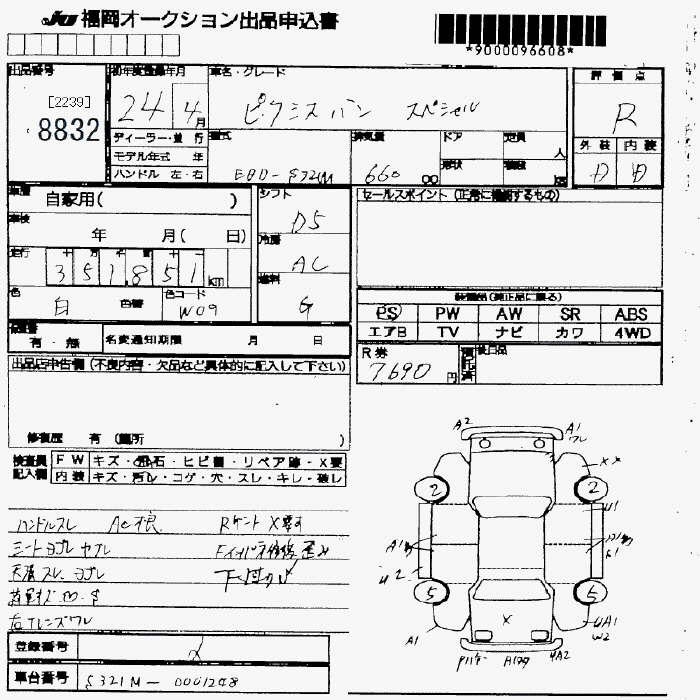 JU 福岡オークション出品申込書
*9000096608*
出品番号
[2239]
8832
初年度登録年月
24 4月
車名・グレード
ピクシスバン スペシャル
評価点
R
外装 内装
D D
ディーラー・並行
モデル年式 年
ハンドル 左・右
型式
EBD-S321M
排気量
660 cc
ドア
形状
定員
人
積載
kg
車歴
自家用( )
車検
年 月( 日)
走行
351851 km
色
白
色替
色コード
W09
シフト
D5
冷房
AC
燃料
G
セールスポイント(正常に機能するもの)
装備品(純正品に限る)
PS PW AW SR ABS
エアB TV ナビ カワ 4WD
保証書
有・無
名変通知期限 月 日
R券
7690円
預託済
後日品
出品店申告欄(不良内容・欠品など具体的に記入して下さい)
修復歴 有(箇所 )
検査員記入欄
FW キズ・飛石・ヒビ割・リペア跡・X要
内装 キズ・汚レ・コゲ・穴・スレ・キレ・破レ
ハンドルスレ AC根
シートヨゴレ ヤブレ
天張スレ ヨゴレ
下回サビ
A2
A1
ワレ
2
2
5
5
U1
U2
A1
UA1
W2
UA2
X
登録番号
車台番号
S321M-0001248